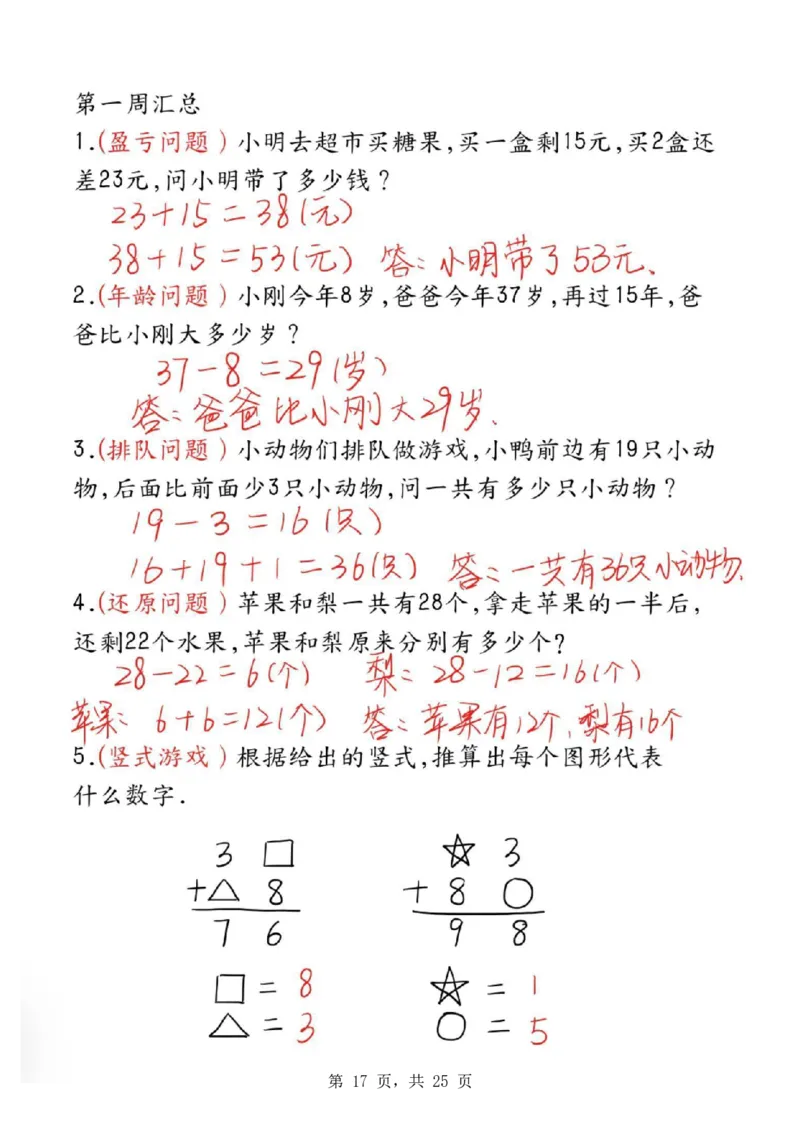 第一周汇总
1.(盈亏问题)小明去超市买糖果,买一盒剩15元,买2盒还
差23元,问小明带了多少钱?
23+15=38(元)
38+15=53(元) 答:小明带了53元.
2.(年龄问题)小刚今年8岁,爸爸今年37岁,再过15年,爸
爸比小刚大多少岁?
37-8=29(岁)
答:爸爸比小刚大29岁.
3.(排队问题)小动物们排队做游戏,小鸭前边有19只小动
物,后面比前面少3只小动物,问一共有多少只小动物?
19-3=16(只)
16+19+1=36(只) 答:一共有36只小动物.
4.(还原问题)苹果和梨一共有28个,拿走苹果的一半后,
还剩22个水果,苹果和梨原来分别有多少个?
28-22=6(个) 梨:28-12=16(个)
苹果:6+6=12(个) 答:苹果有12个,梨有16个
5.(竖式游戏)根据给出的竖式,推算出每个图形代表
什么数字.
3 □ ☆ 3
+△ 8 + 8 ○
7 6 9 8
□=8 ☆=1
△=3 ○=5
第 17 页，共 25 页